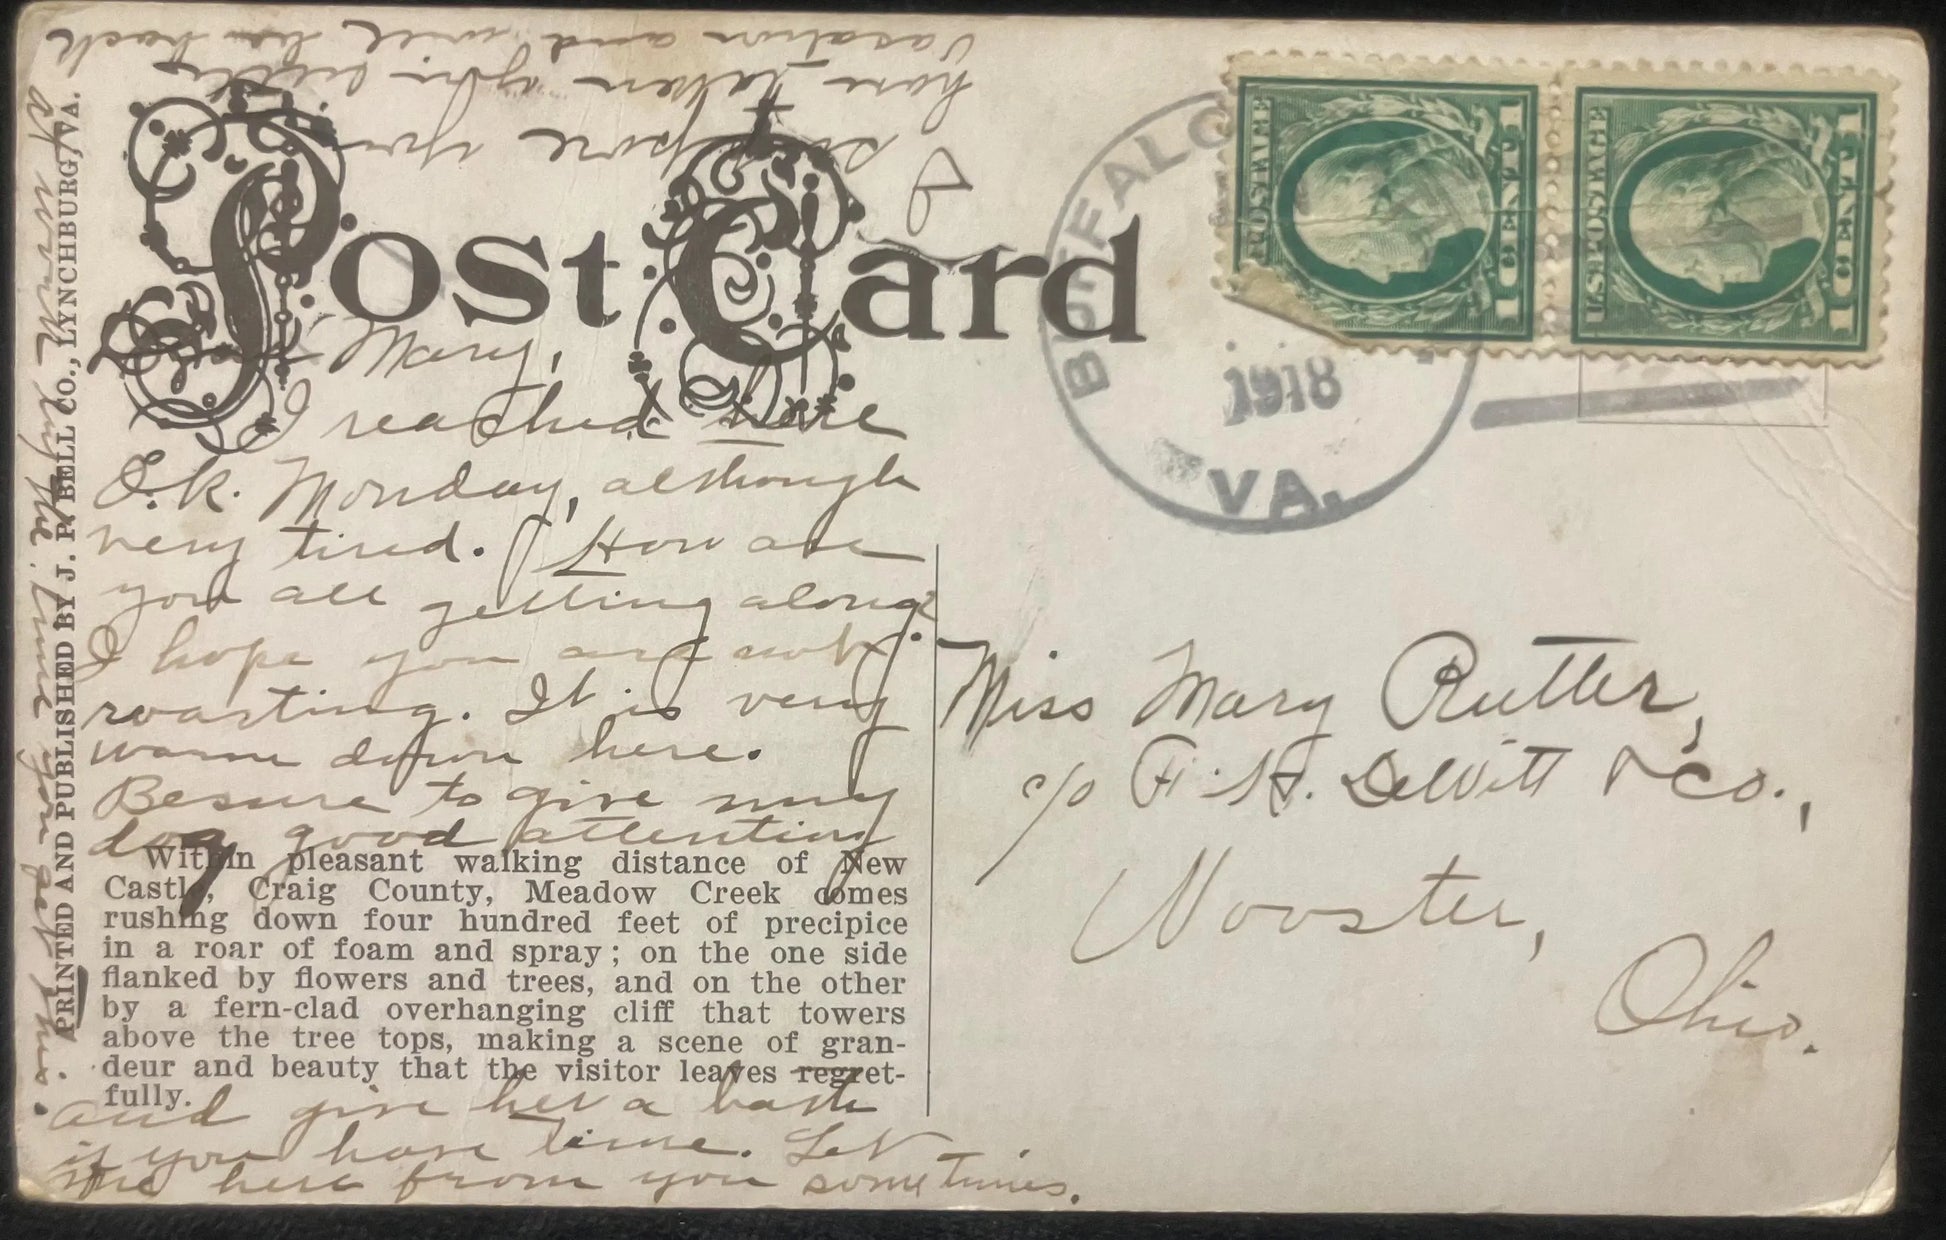 Post Card
BUFFALO
1918
VA.
U.S. POSTAGE
1 CENT 1
U.S. POSTAGE
1 CENT 1
Mary,
I reached here
O.K. Monday, although
very tired. How are
you all getting along?
I hope you are not
roasting. It is very
warm down here.
Be sure to give my
dog good attention
and give her a bath
if you have time. Let
me here from you sometimes.
I suppose you
have taken your little
vacation and will be back
at work by the time you get this.
Within pleasant walking distance of New
Castle, Craig County, Meadow Creek comes
rushing down four hundred feet of precipice
in a roar of foam and spray; on the one side
flanked by flowers and trees, and on the other
by a fern-clad overhanging cliff that towers
above the tree tops, making a scene of gran-
deur and beauty that the visitor leaves regret-
fully.
PRINTED AND PUBLISHED BY J. P. BELL CO., LYNCHBURG, VA.
Miss Mary Rutter,
c/o F. H. DeWitt & Co.,
Wooster,
Ohio.